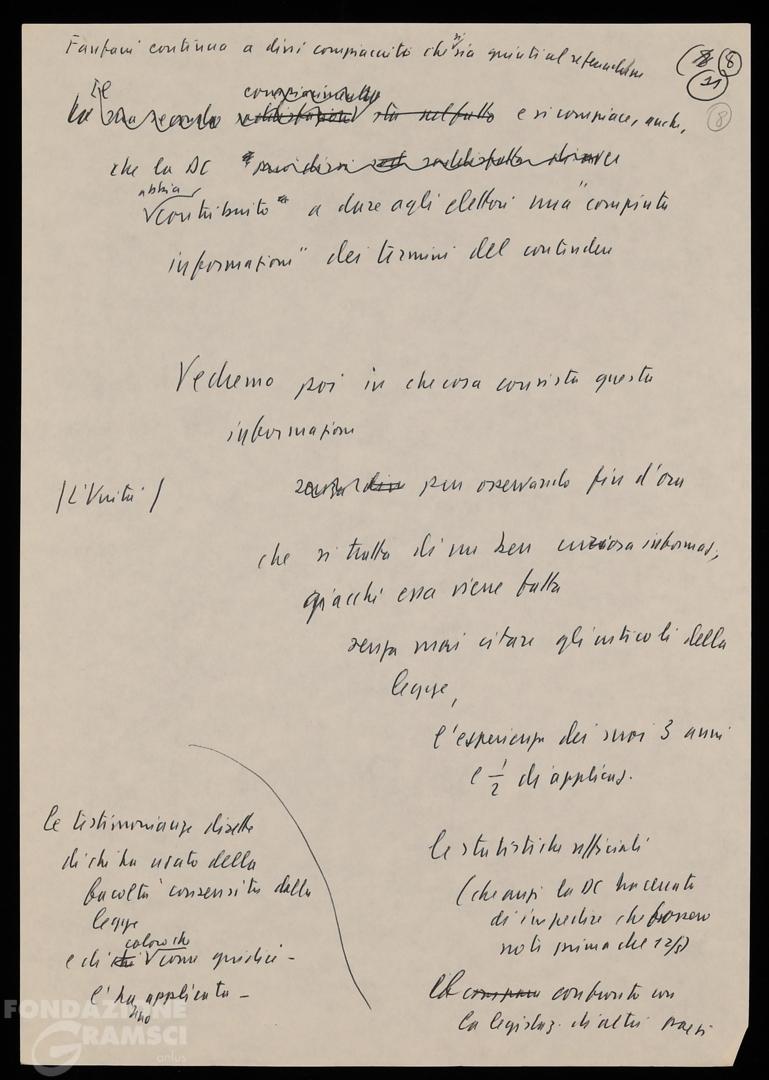 Fanfani continua a dirsi compiaciuto che si sia giunti al referendum
(8
21)
8
compiacimento
e si compiace, anche,
che la DC
abbia
contribuito a dare agli elettori una "compiuta
informazione" dei termini del contendere
Vedremo poi in che cosa consista questa
informazione
/L'Unità/
pur osservando fin d'ora
che si tratta di un ben curiosa informaz,
giacché essa viene fatta
senza mai citare gli articoli della
legge,
l'esperienza dei suoi 3 anni
e 1/2 di applicaz.
le testimonianze dirette
di chi ha usato della
facoltà consentita dalla
legge
coloro che
e di come giudici -
l'hanno applicata -
le statistiche ufficiali
(che anzi la DC ha cercato
di impedire che fossero
noti prima del 12/5)
il confronto con
la legislaz. di altri paesi
FONDAZIONE
GRAMSCI
onlus